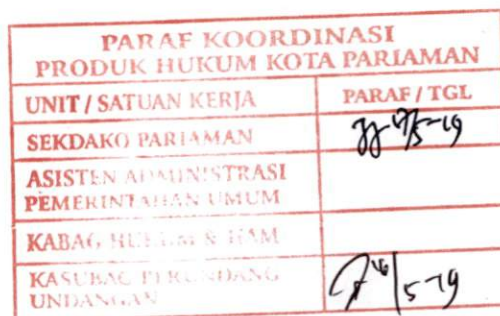 PARAF KOORDINASI
PRODUK HUKUM KOTA PARIAMAN
UNIT / SATUAN KERJA PARAF / TGL
SEKDAKO PARIAMAN 17/5-19
ASISTEN ADMINISTRASI
PEMERINTAHAN UMUM
KABAG HUKUM & HAM
KASUBAG PERUNDANG
UNDANGAN 16/5-19